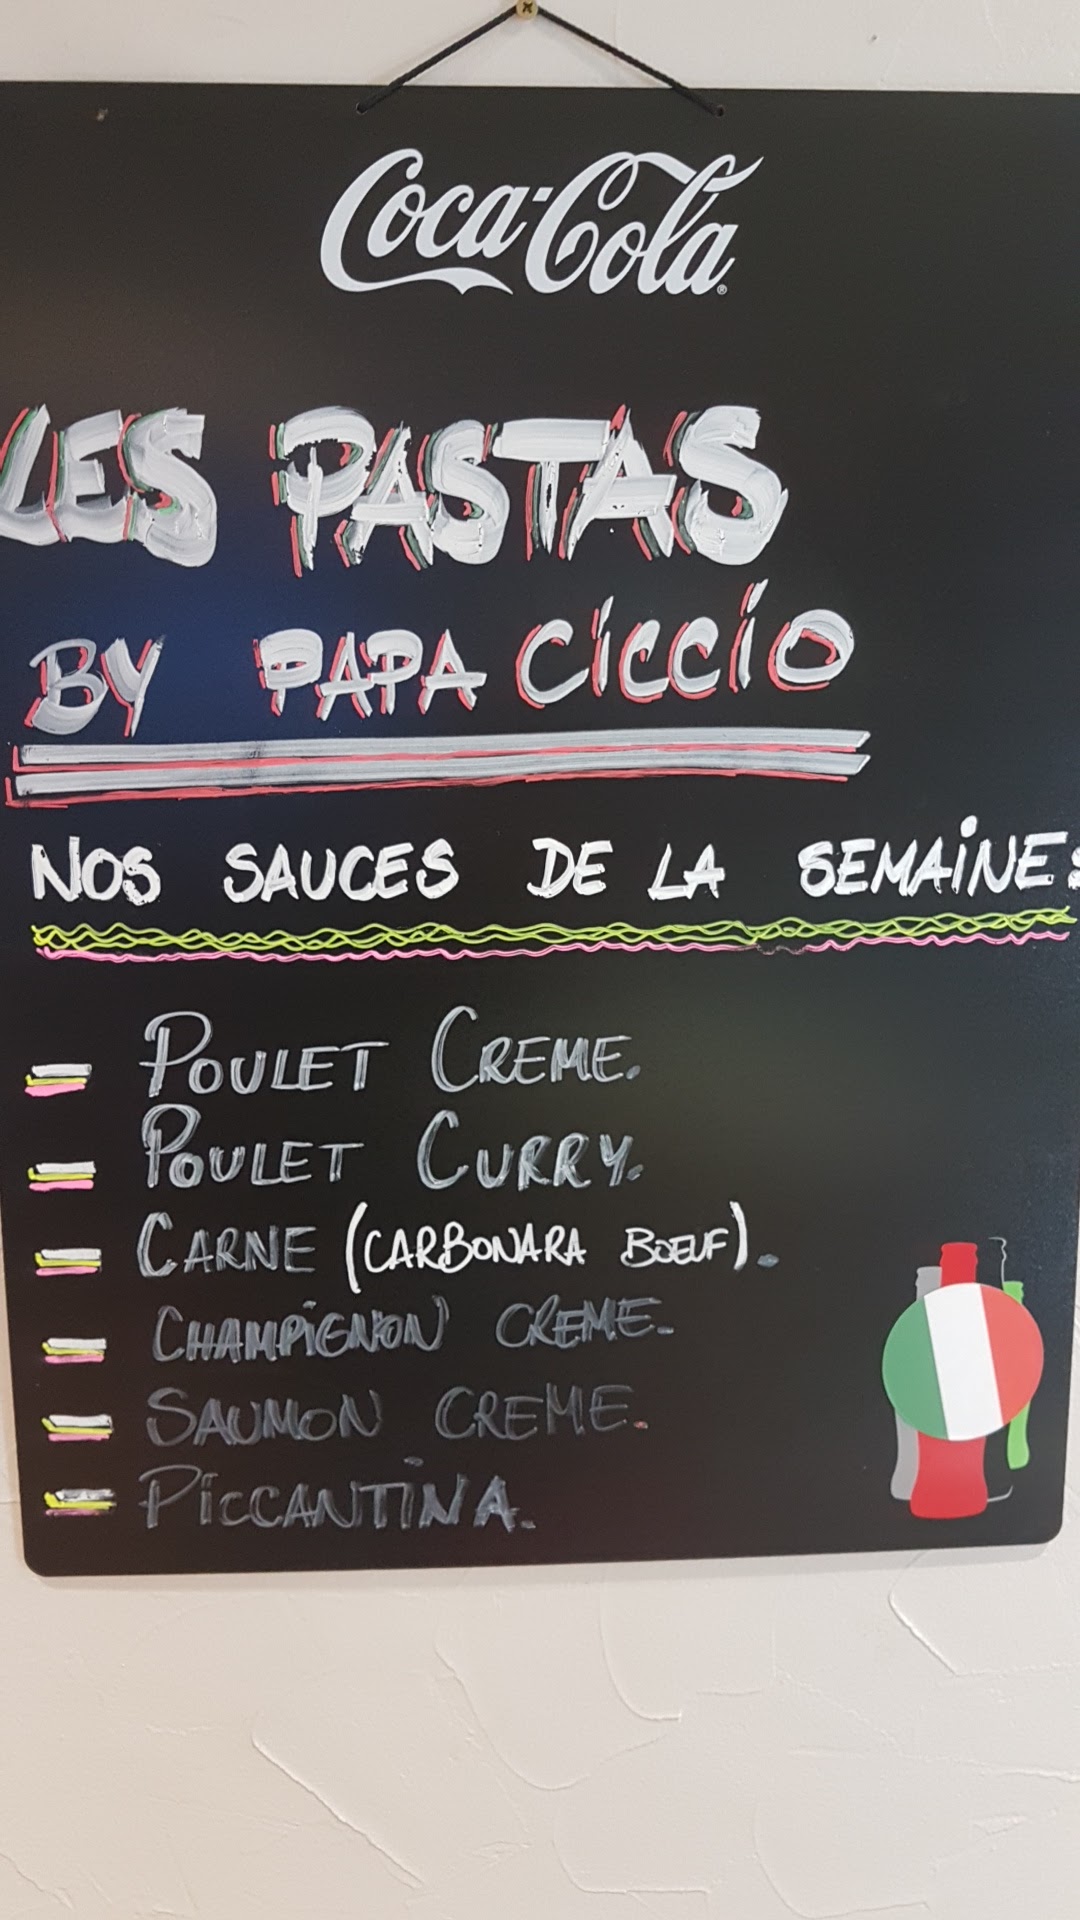 Coca-Cola
LES PASTAS
BY PAPA CICCIO
NOS SAUCES DE LA SEMAINE:
- POULET CREME.
- POULET CURRY.
- CARNE (CARBONARA BOEUF).
- CHAMPIGNON CREME.
- SAUMON CREME.
- PICCANTINA.